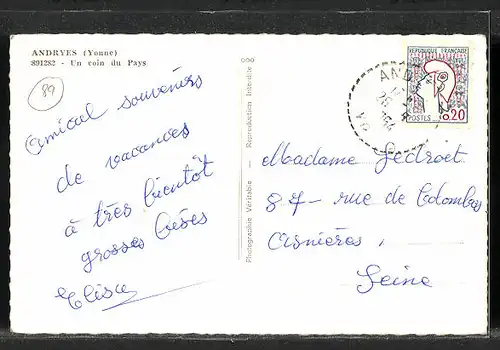 ANDRYES (Yonne)
891282 - Un coin du Pays
89
Amical souvenirs
de vacances
à très bientôt
grosses bises
Elise
Photographie Véritable - Reproduction Interdite
REPUBLIQUE FRANÇAISE
POSTES
0,20
Madame Jedroit
87 - rue de Colombes
Asnières,
Seine